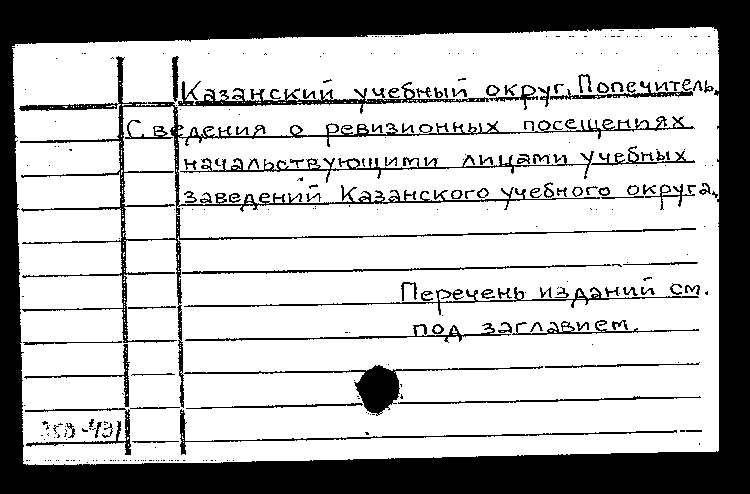 Казанский учебный округ. Попечитель.
Сведения о ревизионных посещениях
начальствующими лицами учебных
заведений Казанского учебного округа.
Перечень изданий см.
под заглавием.